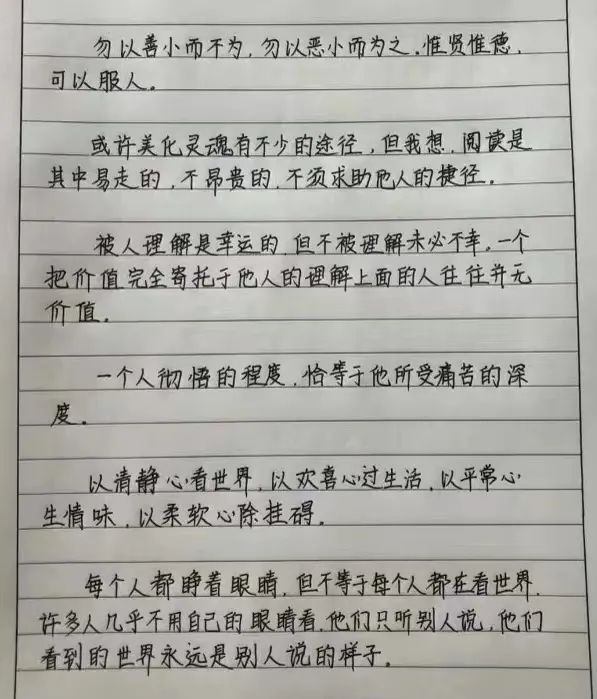 勿以善小而不为,勿以恶小而为之.惟贤惟德,
可以服人。
或许美化灵魂有不少的途径,但我想,阅读是
其中易走的,不昂贵的,不须求助他人的捷径。
被人理解是幸运的,但不被理解未必不幸。一个
把价值完全寄托于他人的理解上面的人往往并无
价值。
一个人彻悟的程度,恰等于他所受痛苦的深
度。
以清静心看世界,以欢喜心过生活,以平常心
生情味,以柔软心除挂碍。
每个人都睁着眼睛,但不等于每个人都在看世界,
许多人几乎不用自己的眼睛看,他们只听别人说,他们
看到的世界永远是别人说的样子。